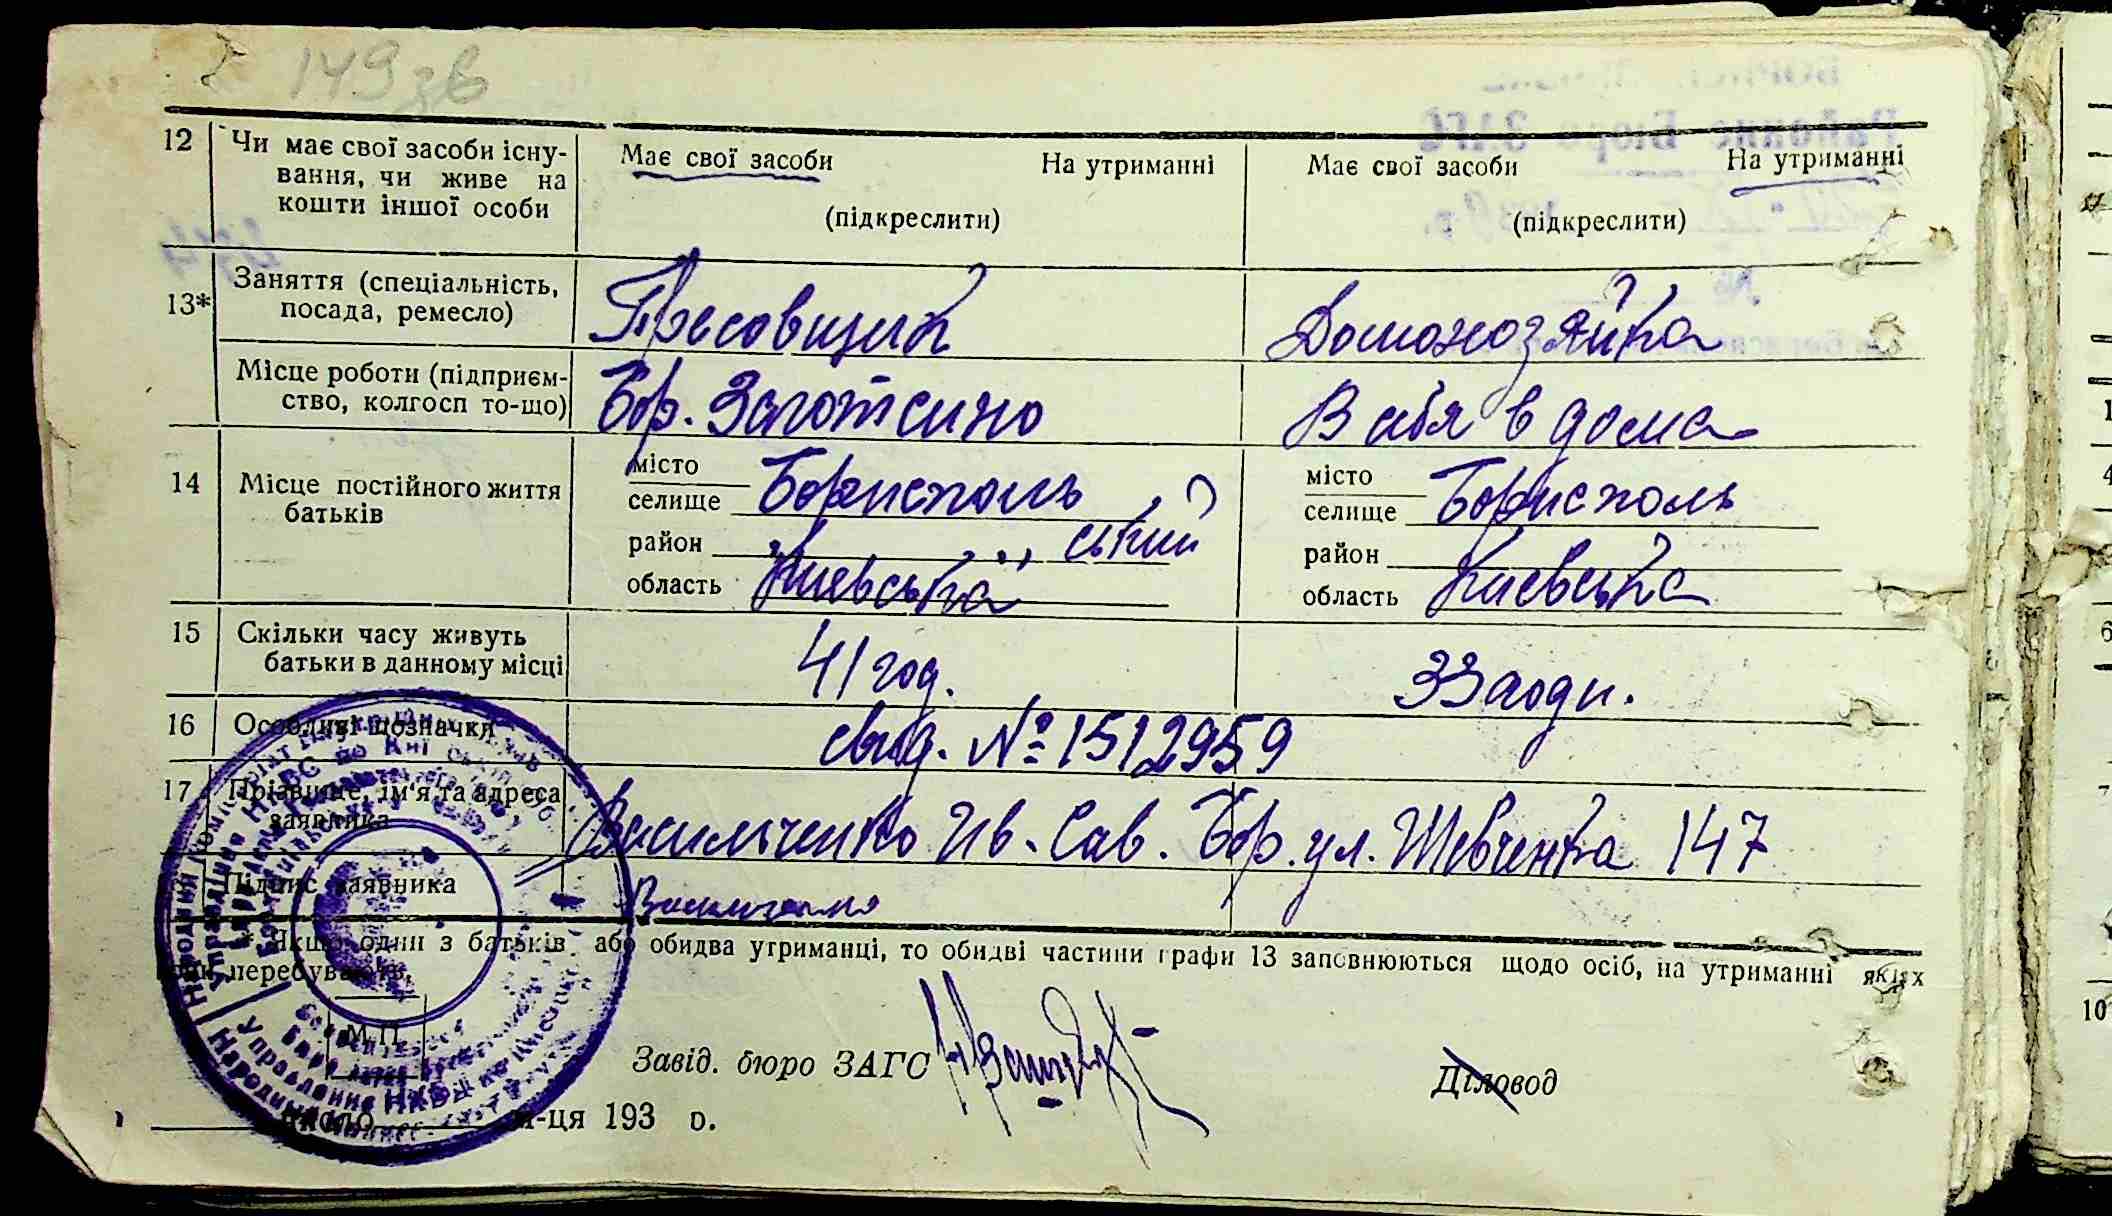 149 зв
12 Чи має свої засоби існу-
вання, чи живе на
кошти іншої особи
Має свої засоби На утриманні
(підкреслити)
Має свої засоби На утриманні
(підкреслити)
13* Заняття (спеціальність,
посада, ремесло)
Пресовщик
Домохозяйка
Місце роботи (підприєм-
ство, колгосп то-що)
Бор. Заготсино
В себя в дома
14 Місце постійного життя
батьків
місто
селище Борисполь
район " " ський
область Киевська
місто
селище Борисполь
район
область Киевська
15 Скільки часу живуть
батьки в данному місці
41 год.
33 годи.
16 Особливі позначки
свид. № 1512959
17 Прізвище, ім'я та адреса
заявника
Васильченко Ив. Сав. Бор. ул. Шевченка 147
Підпис заявника
Васильченко
* Якщо один з батьків або обидва утриманці, то обидві частини графи 13 заповнюються щодо осіб, на утриманні яких
вони перебувають.
М.П.
Завід. бюро ЗАГС
Діловод
число м-ця 193 р.